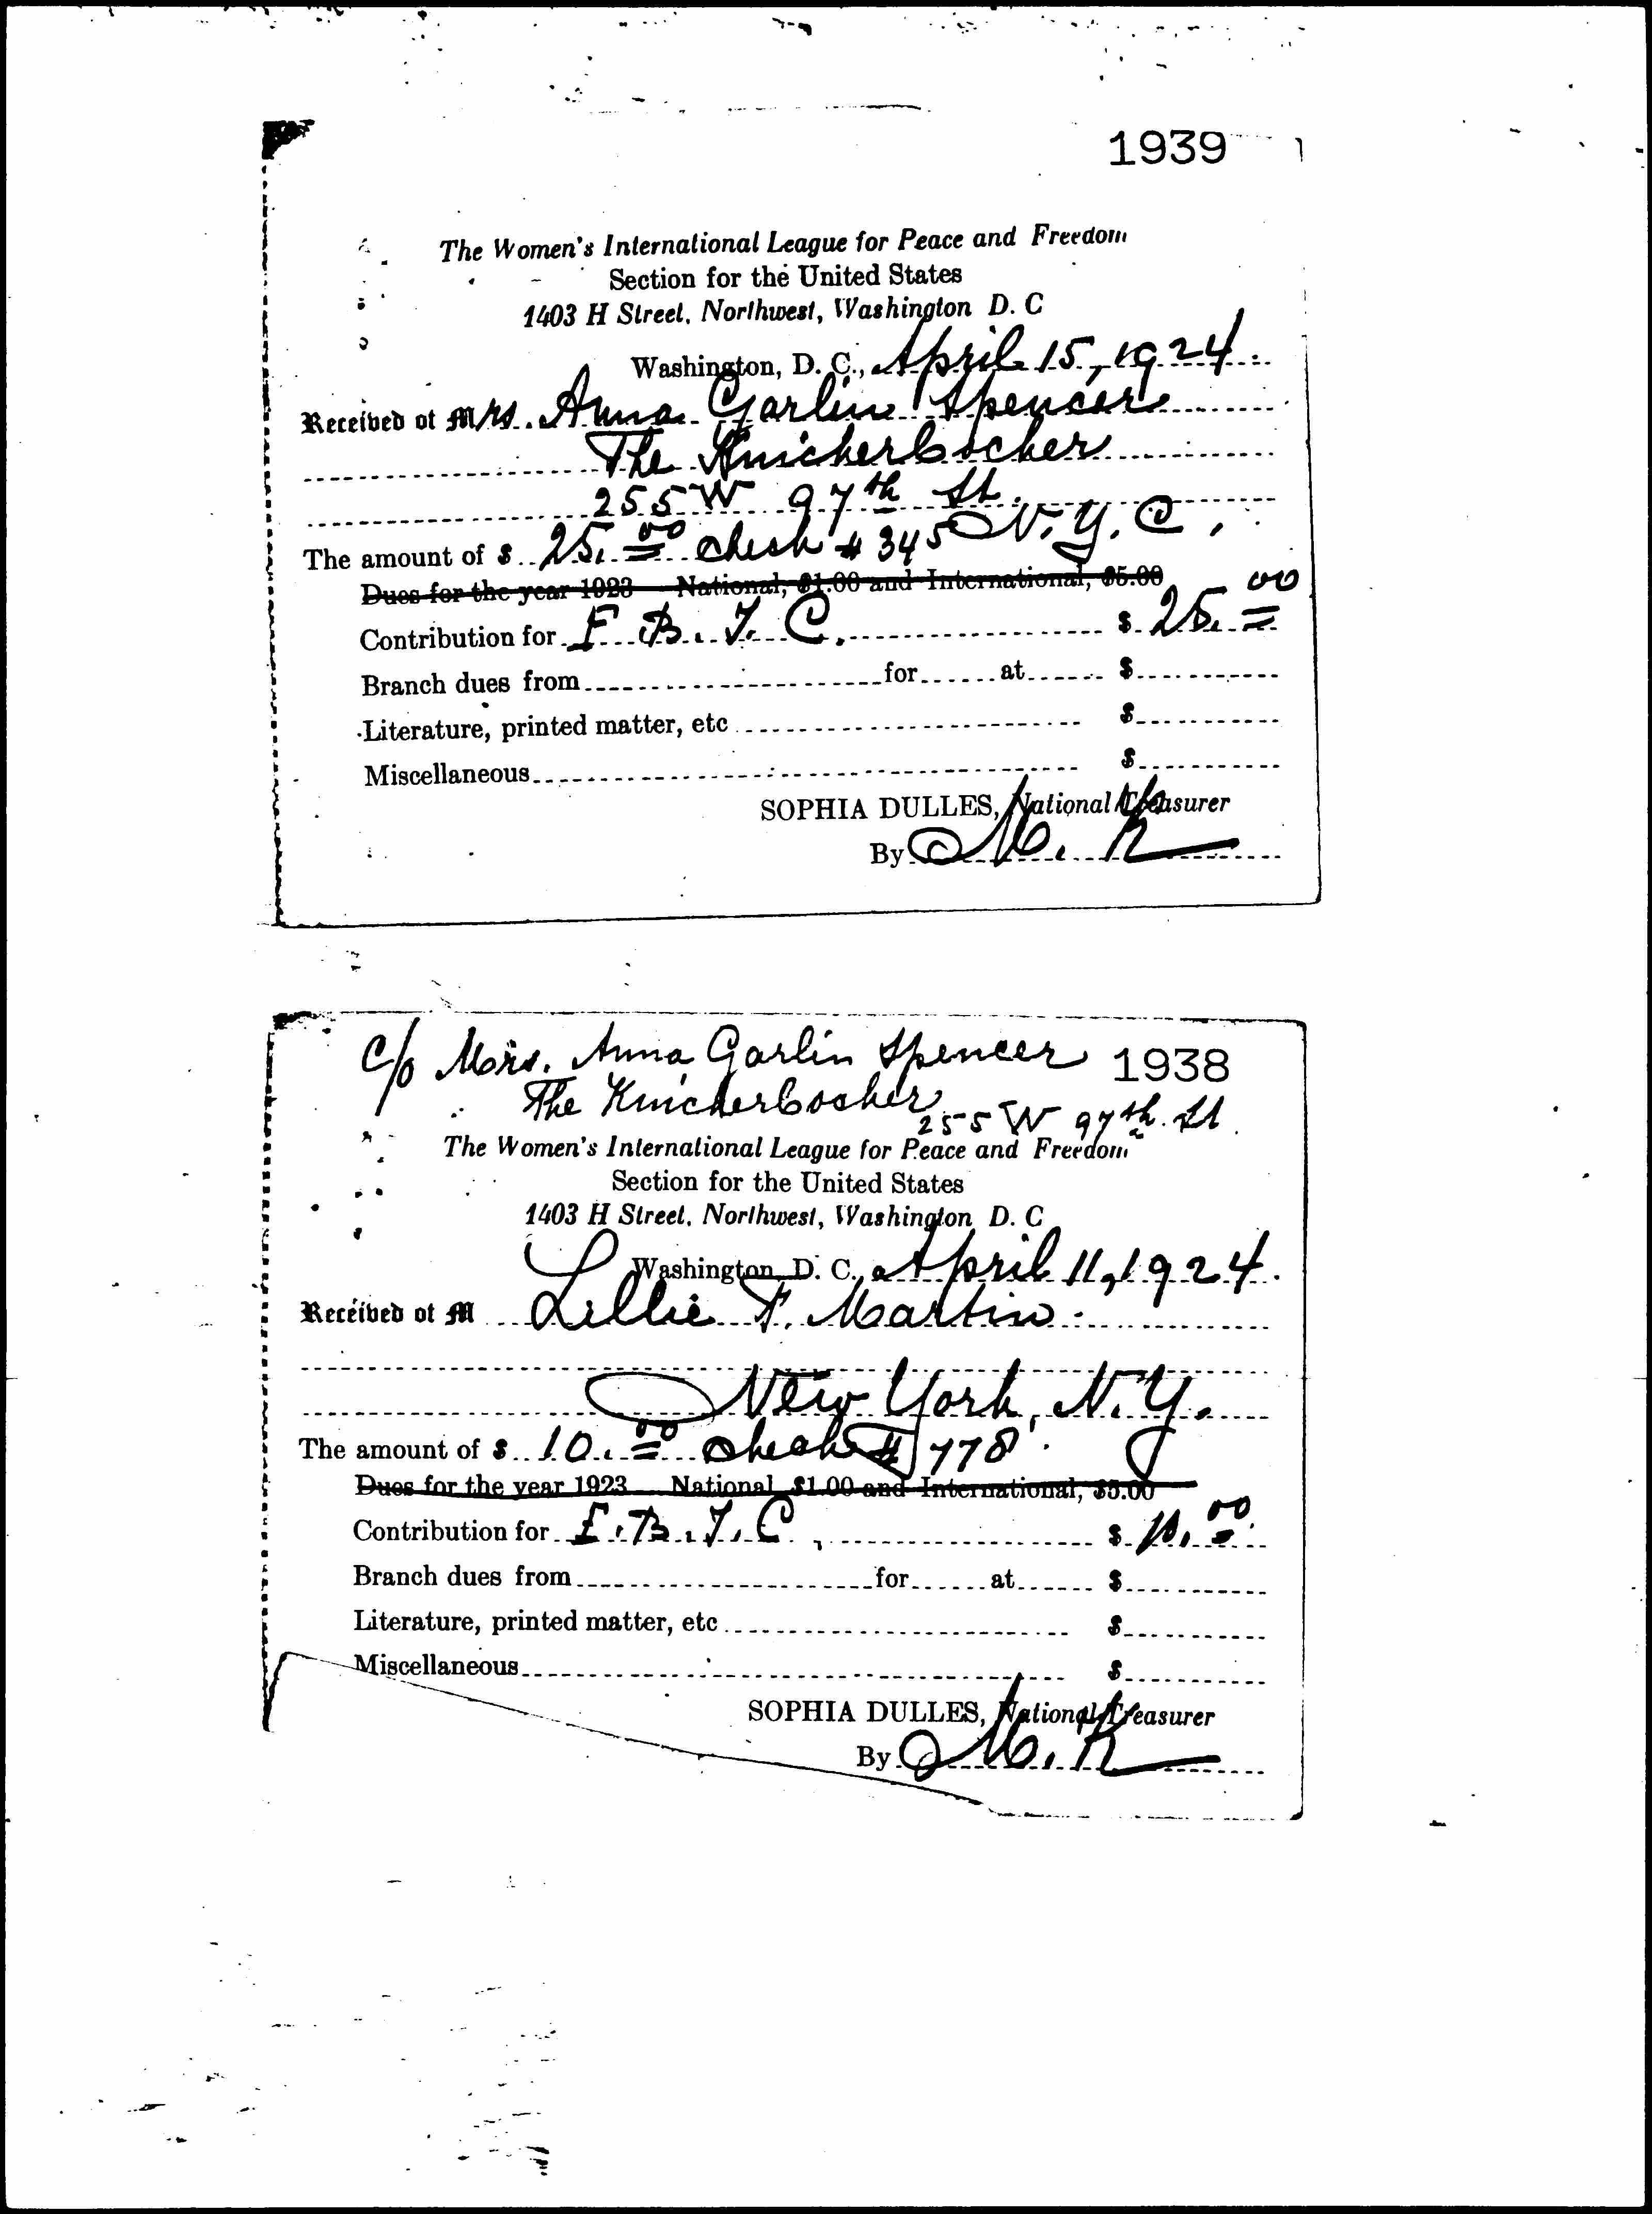 1939
The Women's International League for Peace and Freedom
Section for the United States
1403 H Street, Northwest, Washington D. C
Washington, D. C., April 15, 1924
Received of Mrs. Anna Garlin Spencer
The Knickerbocker
255 W 97th St.
N. Y. C.
The amount of $ 25.00 check # 345
Dues for the year 1923 National, $1.00 and International, $5.00
Contribution for F. B. I. C. $ 25.00
Branch dues from for at $
Literature, printed matter, etc $
Miscellaneous $
SOPHIA DULLES, National Treasurer
By M. R
c/o Mrs. Anna Garlin Spencer 1938
The Knickerbocker
255 W 97th. St
The Women's International League for Peace and Freedom
Section for the United States
1403 H Street, Northwest, Washington D. C
Washington, D. C., April 11, 1924.
Received of M Lillie F. Martin
New York, N. Y.
The amount of $ 10.00 check # 778
Dues for the year 1923 National $1.00 and International, $5.00
Contribution for F. B. I. C. $ 10.00
Branch dues from for at $
Literature, printed matter, etc $
Miscellaneous $
SOPHIA DULLES, National Treasurer
By M. R